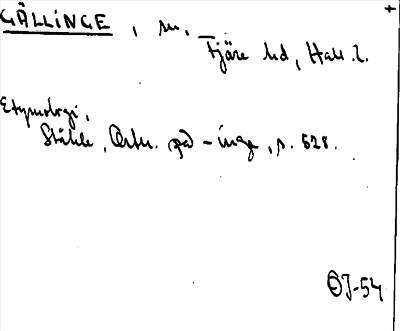 GÄLLINGE, sn.
Fjäre hd, Hall. l.
Etymologi,
Ståhle, Ortn. på -inge, s. 528.
OJ-54